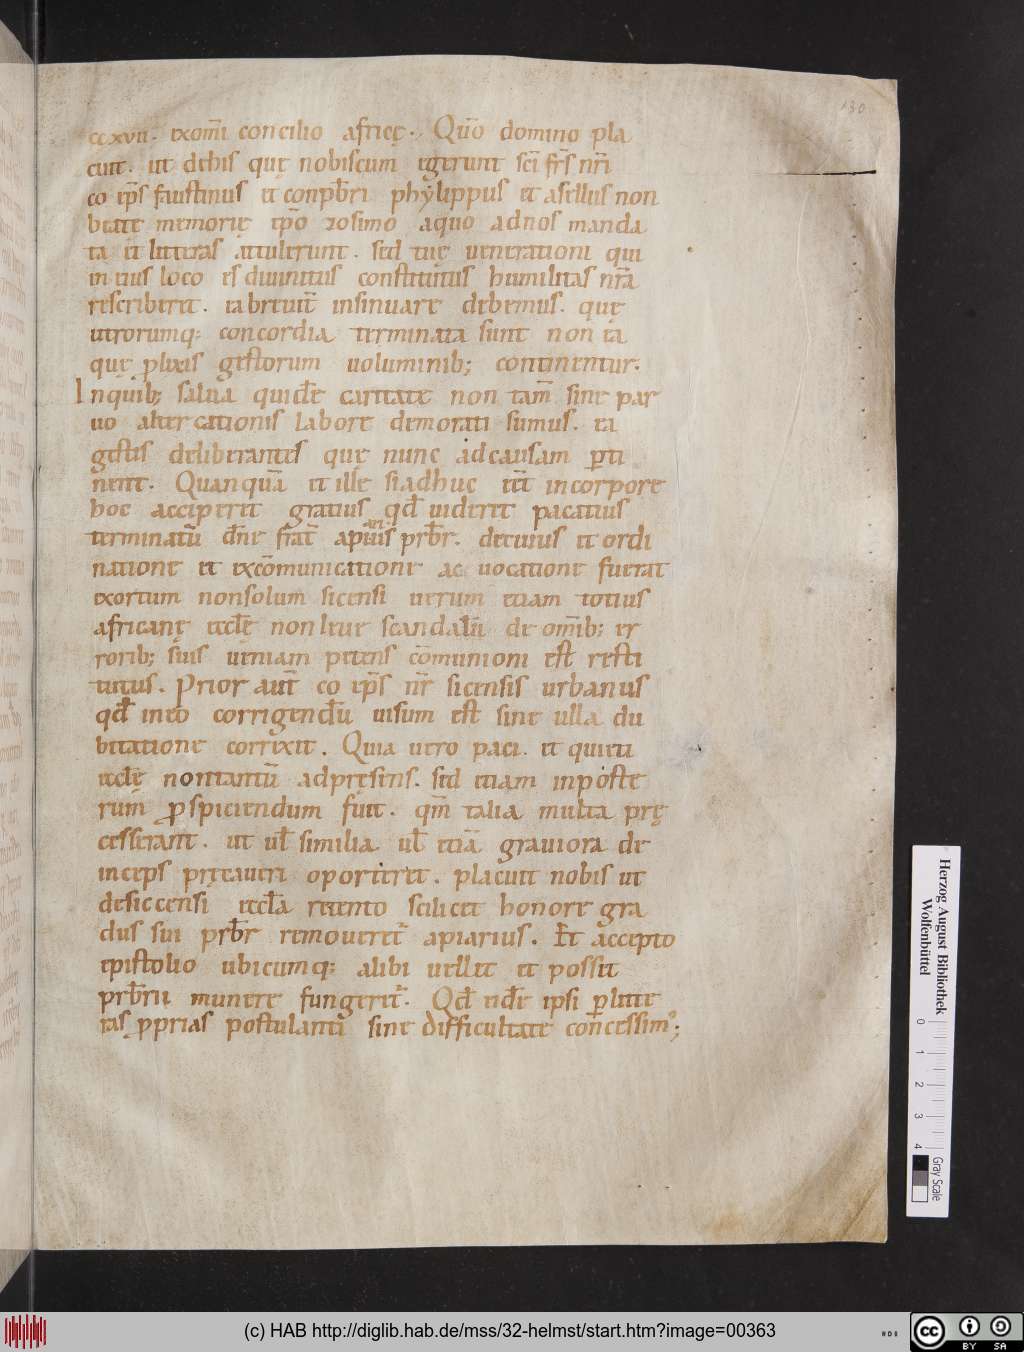 130
ccxvii. exom̄i concilio africę. Qūo domino pla
cuit. ut debis quę nobiscum egerunt sc̄i fr̄s nr̄i
co ep̄s faustinus et conpb̄ri phylippus et asellus non
beate memorię ep̄o zosimo aquo adnos manda
ta et litteras attulerunt. sed tuę uenerationi qui
in eius loco es diuinitus constitutus humilitas nr̄a
rescriberet. ea breuit̄ insinuare debemus. quę
utrorumq: concordia terminata sunt non ea
quę plixis gestorum uoluminib; continentur.
Inquib; salua quidē caritate non tam̄ sine par
uo altercationis labore demorati sumus. ea
gestis deliberantes quę nunc adcausam p̄ti
nent. Quanquā et ille siadhuc eēt incorpore
hoc acciperet gratius qd̄ uideret pacatius
terminatū d̄ne frat̄ apuiis prb̄r. decuius et ordi
natione et excōmunicatione ac uocatione fuerat
exortum nonsolum sicensi uerum etiam totius
africanę ecclē nonleue scandalū de om̄ib; er
rorib; suis ueniam petens cōmunioni est resti
tutus. Prior aut̄ co ep̄s nr̄ sicensis urbanus
qd̄ ineo corrigendū uisum est sine ulla du
bitatione correxit. Quia uero paci. et quieti
ecclę nontantū adpręsens. sed etiam inposte
rum p̄spiciendum fuit. qm̄ talia multa prę
cesserant. ut ul̄ similia ul̄ etiā grauiora de
inceps pręcaueri oporteret. placuit nobis ut
desiccensi eccl̄a retento scilicet honore gra
dus sui prb̄r remoueret̄ apiarius. Et accepto
epistolio ubicumq: alibi uellet et posset
prb̄rii munere fungeret̄. Qd̄ eidē ipsi p̄ litte
ras p̄prias postulanti sine difficultate concessim⁹;
Herzog August Bibliothek
Wolfenbüttel
0 1 2 3 4
Gray Scale
(c) HAB http://diglib.hab.de/mss/32-helmst/start.htm?image=00363
cc BY SA